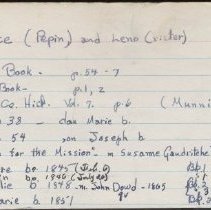 ce (Pepin) and Leno (Victor)
Book - p. 54 - 7
Book - p. 1, 2
Co. Hist. Vol. 7. p. 6 (Munni
38 - dau Marie b.
54 , son Joseph b.
for the Mission" m Susanne Gaudritche
re bo 1845 (Feb. 6) Bp. 1
n bo. 1846 (July 20) p. 1
lie b 1848 - m. John Dowd - 1865 Bp. 2
arie b 1851